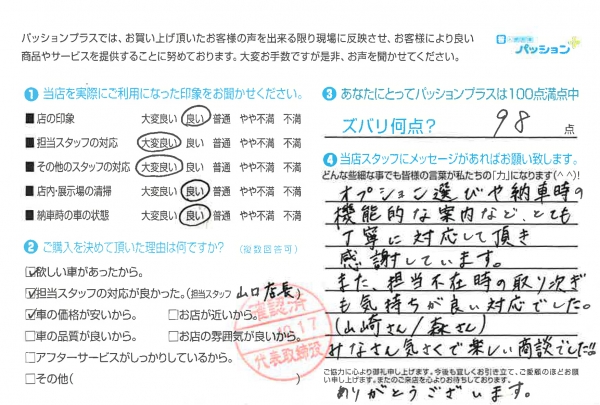 パッションプラスでは、お買い上げ頂いたお客様の声を出来る限り現場に反映させ、お客様により良い
商品やサービスを提供することに努めております。大変お手数ですが是非、お声を聞かせてください。
パッション
① 当店を実際にご利用になった印象をお聞かせください。
■ 店の印象 大変良い 良い 普通 やや不満 不満
■ 担当スタッフの対応 大変良い 良い 普通 やや不満 不満
■ その他のスタッフの対応 大変良い 良い 普通 やや不満 不満
■ 店内・展示場の清掃 大変良い 良い 普通 やや不満 不満
■ 納車時の車の状態 大変良い 良い 普通 やや不満 不満
② ご購入を決めて頂いた理由は何ですか? (複数回答可)
☑欲しい車があったから。
☑担当スタッフの対応が良かった。(担当スタッフ 山口店長)
☑車の価格が安いから。 □お店が近いから。
□車の品質が良いから。 □お店の雰囲気が良いから。
□アフターサービスがしっかりしているから。
□その他(
確認済
10.17
代表取締役
③ あなたにとってパッションプラスは100点満点中
ズバリ何点? 98 点
④ 当店スタッフにメッセージがあればお願い致します。
どんな些細な事でも皆様の言葉が私たちの「力」になります(^^)!
オプション選びや納車時の
機能的な案内など、とても
丁寧に対応して頂き
感謝しています。
また、担当不在時の取り次ぎ
も気持ちが良い対応でした。
(山崎さん/森さん)
みなさん気さくで楽しい商談でした!!
ご協力に心より御礼申し上げます。今後も宜しくお引き立て、ご愛顧のほどお願
い申し上げます。またのご来店を心よりお待ちしております。
ありがとうございます。